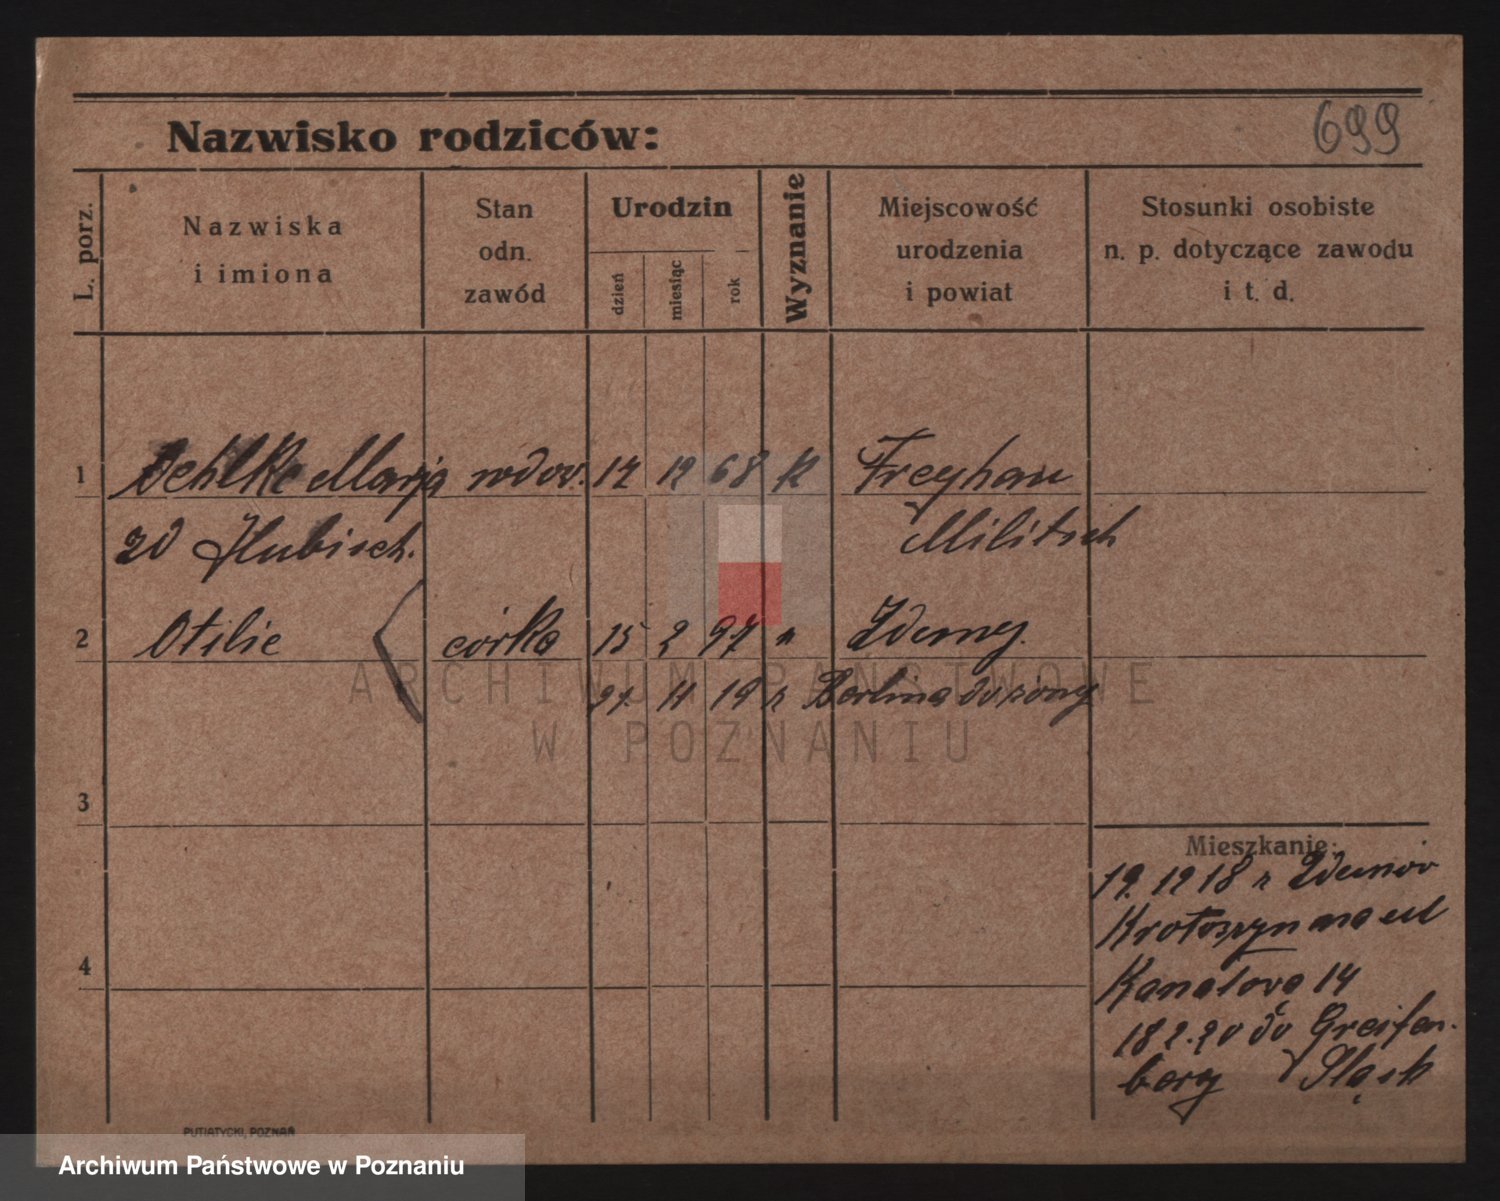 699
Nazwisko rodziców:
L. porz.
Nazwiska
i imiona
Stan
odn.
zawód
Urodzin
dzień
miesiąc
rok
Wyznanie
Miejscowość
urodzenia
i powiat
Stosunki osobiste
n. p. dotyczące zawodu
i t. d.
1 Oehlke Marja wdow. 14 12 68 k Freyhan
zd Hubisch. Militsch
2 Otilie córka 15 2 97 " Zduny.
21. 11 19 z Berlina do
3
Mieszkanie:
19. 12 18 z
Krotoszyn na ul
4 Kanałova 14
18 2. 20 do Greifen-
berg Śląsk
PUTIATYCKI, POZNAŃ
ARCHIWUM PAŃSTWOWE
W POZNANIU
Archiwum Państwowe w Poznaniu